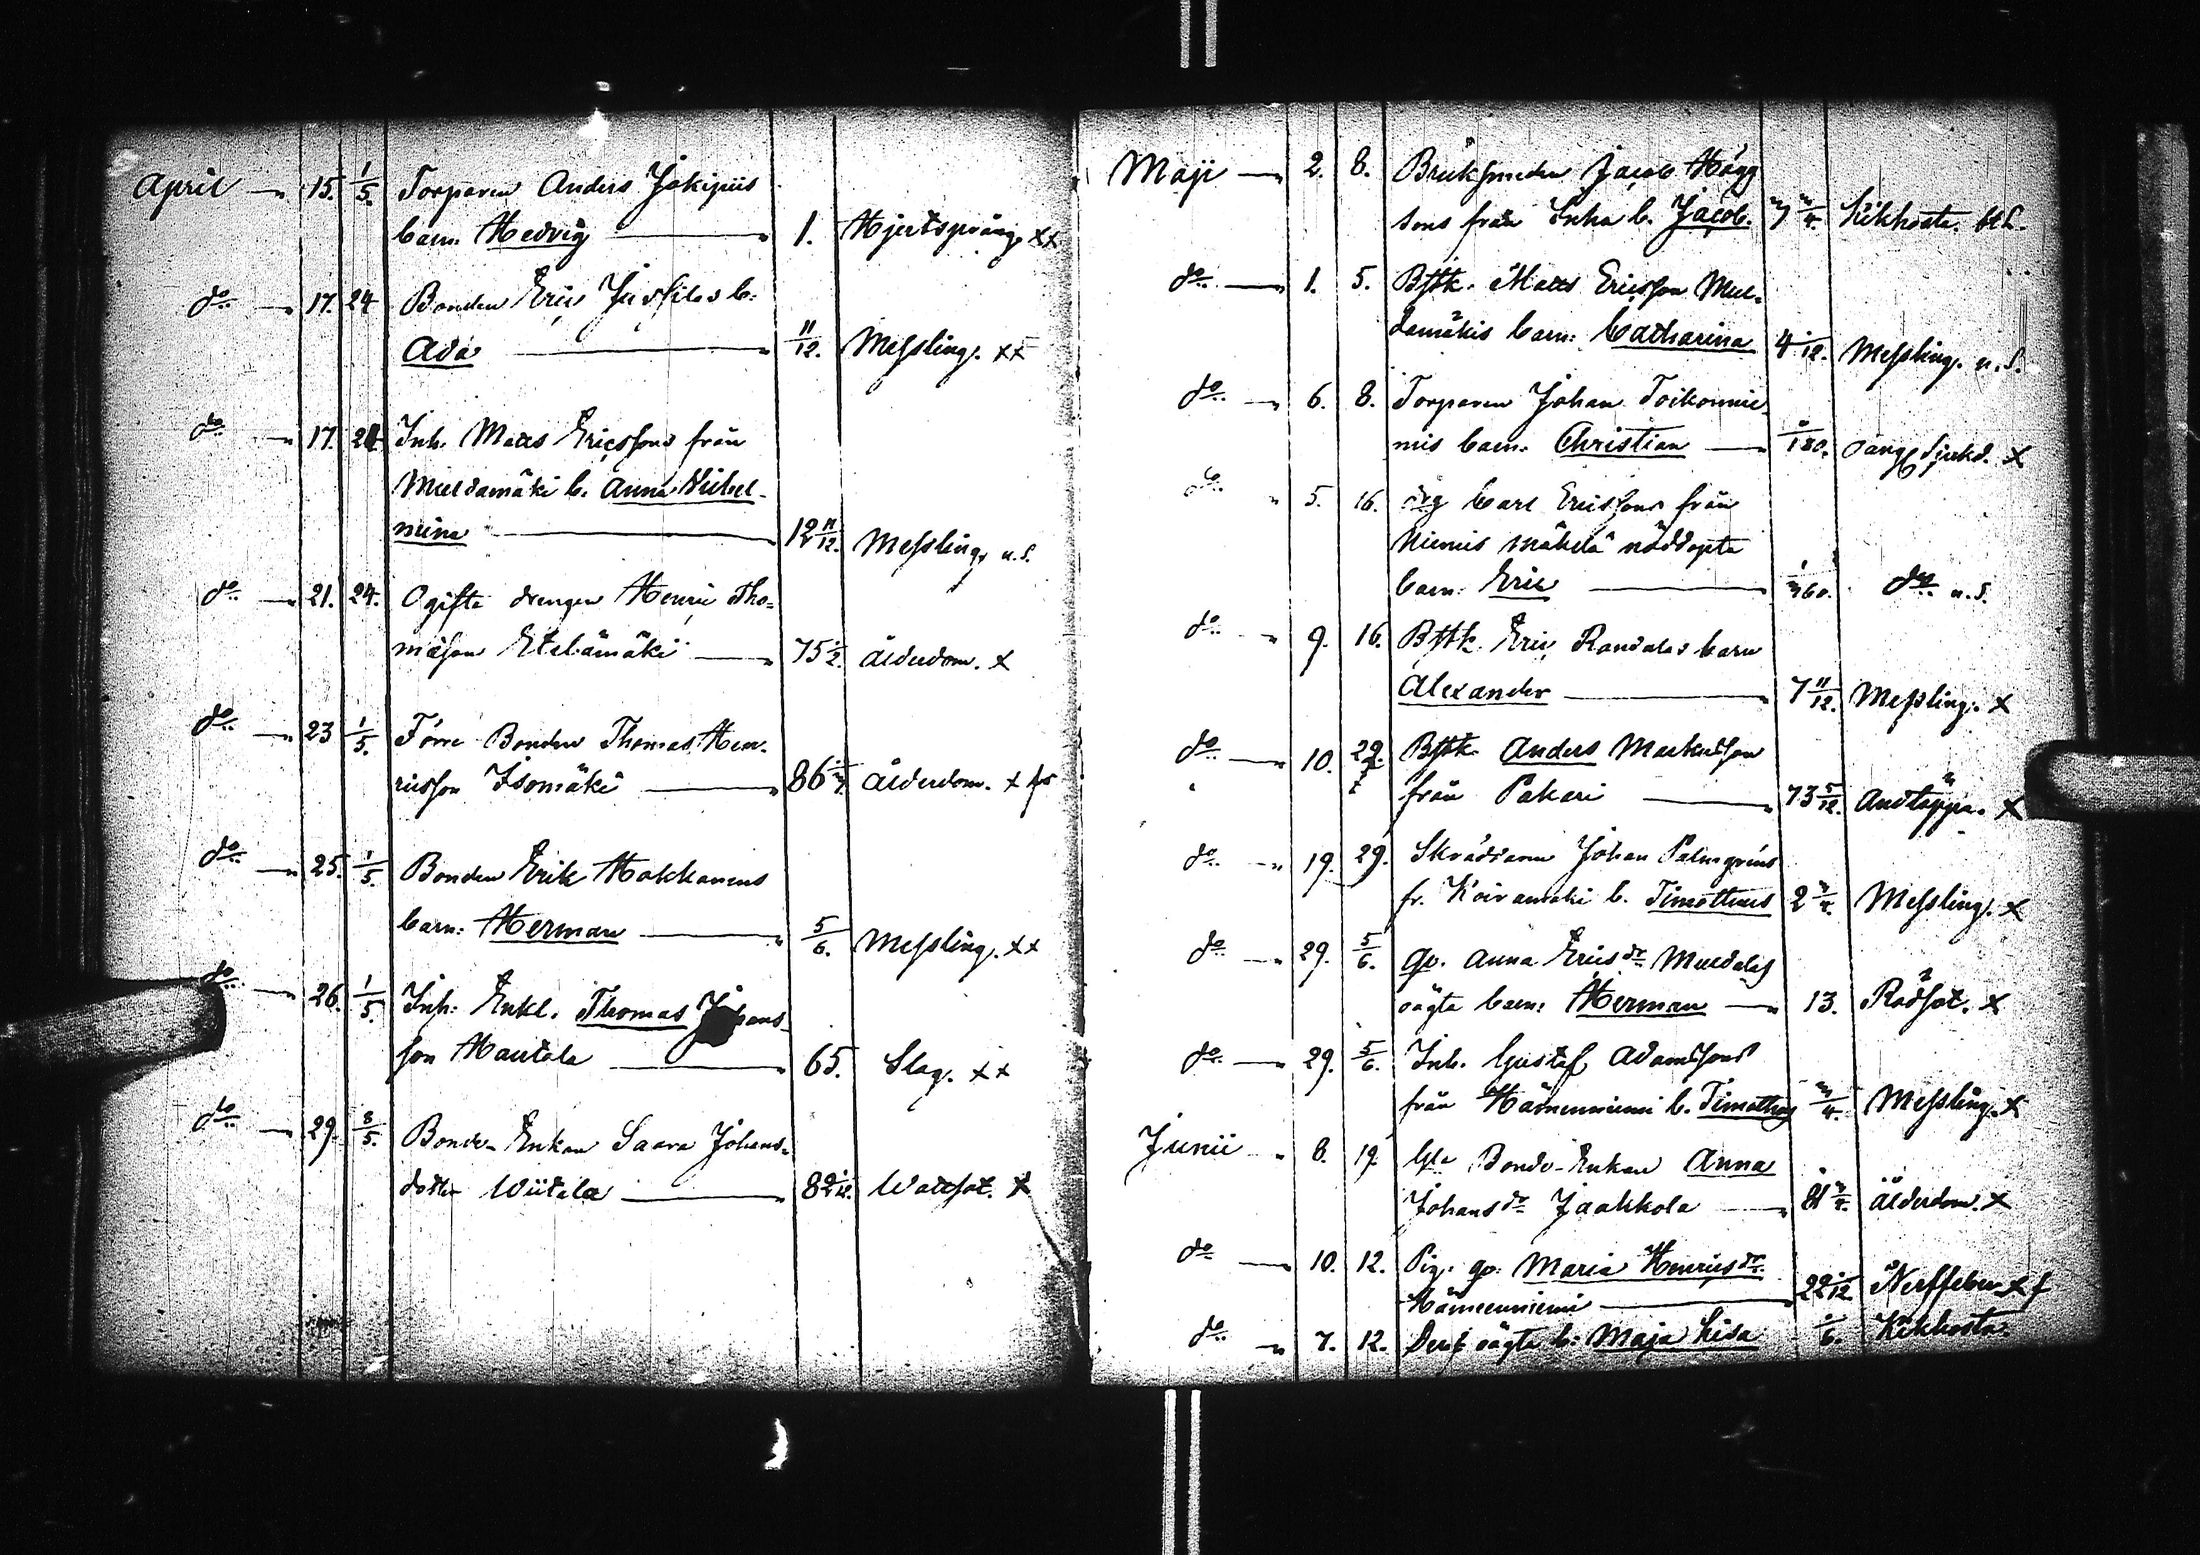 April 15. 1/5. Torparen Anders Jokipiis
barn. Hedvig 1. Hjertsprång. xx
do 17. 24 Bonden Eric Jussilas b.
Ada 11/12. Messling. xx
do 17. 24. Inh. Matts Ericssons från
Muldamäki b. Anna Vilhel-
mina 12 11/12. Messling. u.S.
do 21. 24. Ogifta drengen Henric Tho-
masson Etelämäki 75 1/2. Ålderdom. x
do 23 1/5. Förre Bonden Thomas Hen-
ricsson Isomäki 86 Ålderdom. x
do 25. 1/5. Bonden Erik Hakkarens
barn: Herman 5/6. Messling. xx
do 26. 1/5. Inh. Enkl. Thomas Johans-
son Hautala 65. Slag. xx
do 29. 8/5. Bonde-Enkan Saara Johans-
dotter Wiitala 82 Wattsot. x
Maji 2. 8. Bruksmeden Jacob Hägg
tons från Inha b. Jacob. 3/4. Kikhosta.
do 1. 5. Bstk. Matts Ericsson Mul-
damäkis barn: Catharina 4 1/12. Messling. u.S.
do 6. 8. Torparen Johan Toikonnie-
mis barn. Christian Oang. Sjukd. x
do 5. 16. Drg Carl Ericssons från
Niemis mäkelä nöddöpta
barn: Eric 1/360. do u.S.
do 9. 16. Bstk. Eric Randalas barn
Alexander 7 11/12. Messling. x
do 10. 29. Bstk. Anders Markusson
från Pakari 73 5/12. Andtäppa. x
do 19. 29. Skräddaren Johan Palmgrens
fr. Koivumäki b. Timotheus 2 3/4. Messling. x
do 29. 5/6. Qv. Anna Ericsdr Muldalas
oägta barn: Herman 13. Rödsot. x
do 29. 5/6. Inh. Gustaf Adamssons
från Hämeenniemi b. Timotheus 3/4. Messling. x
Junii 8. 19. Gla Bonde-Enkan Anna
Johansdr Jaakkola 81 3/4. Ålderdom. x
do 10. 12. Pig. qv. Maria Henricsdr
Hämeenniemi 22 1/12 Nerffeber x
do 7. 12. Ders oägta b: Maja Lisa 1/6. Kikhosta.